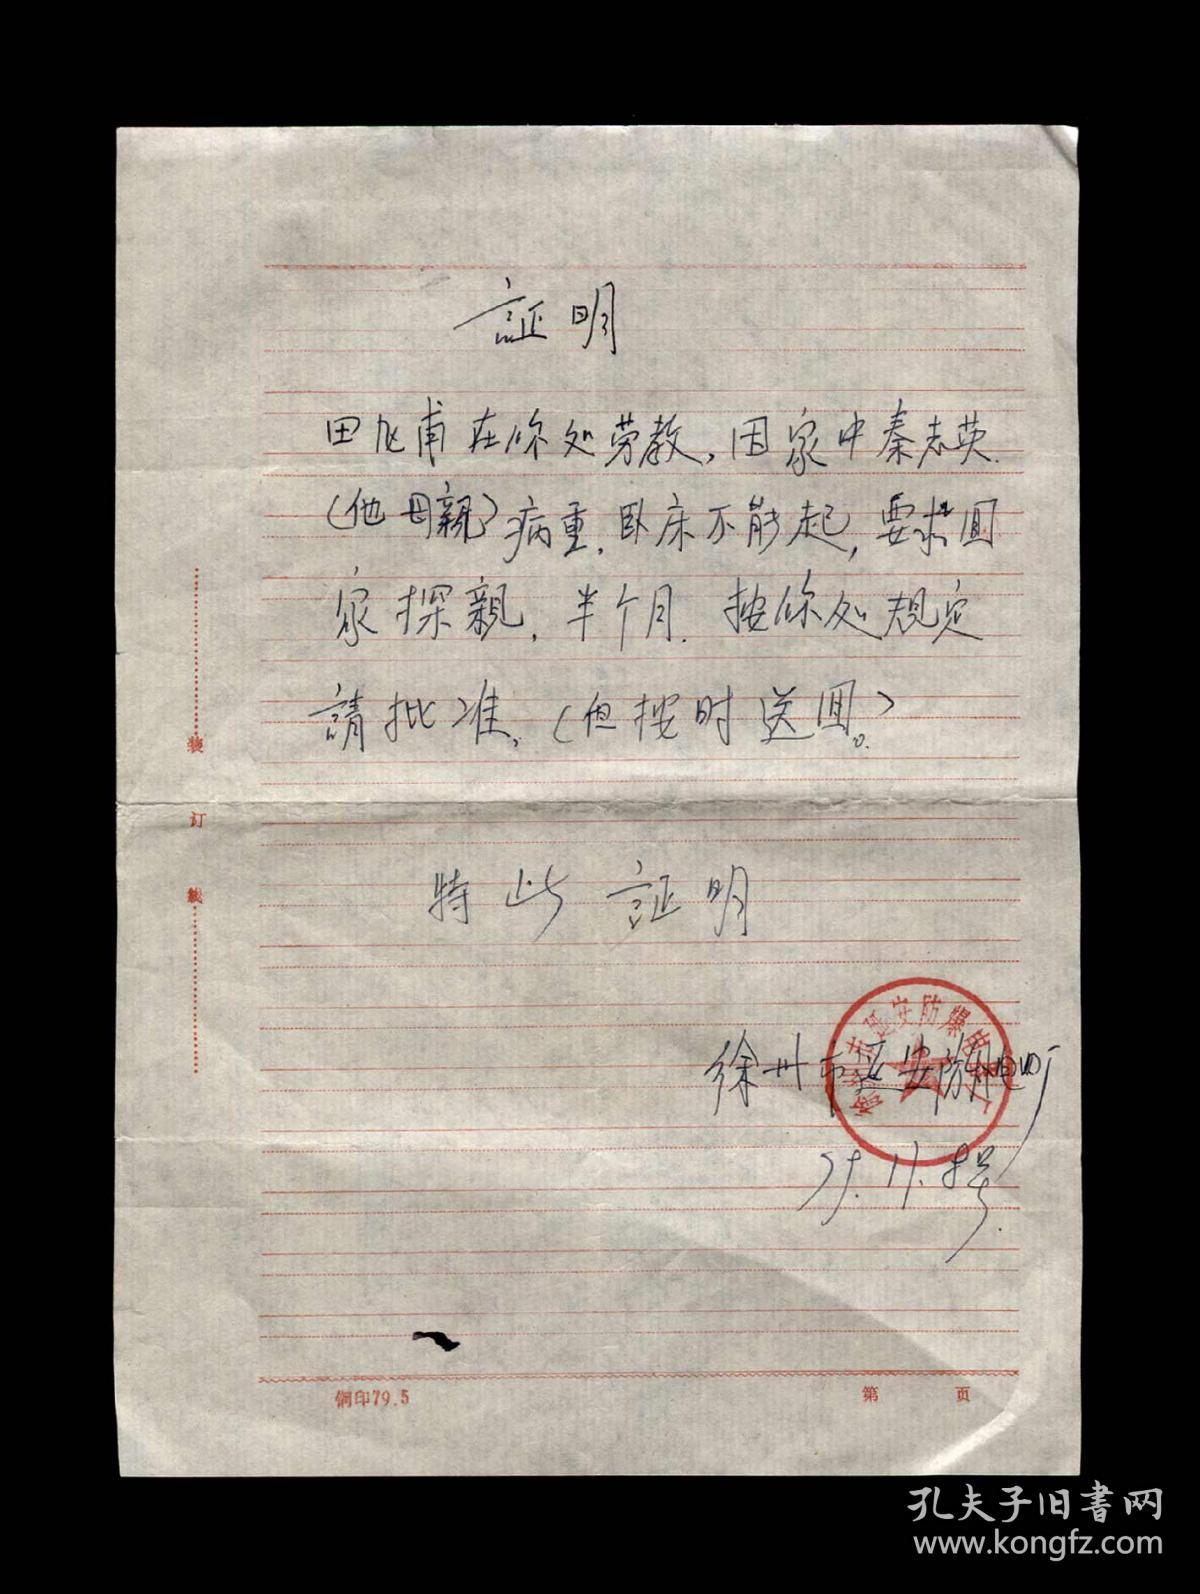 証明
田旭甫在你处劳教,因家中秦志英.
(他母親)病重.卧床不能起,要求回
家探親,半个月.按你处规定
請批准,(但按时送回。)
特此証明
徐州市延安防爆电机厂
79.11.8号.
徐州市延安防爆电机厂
装
订
线
铜印79.5
第 页
孔夫子旧書网
www.kongfz.com